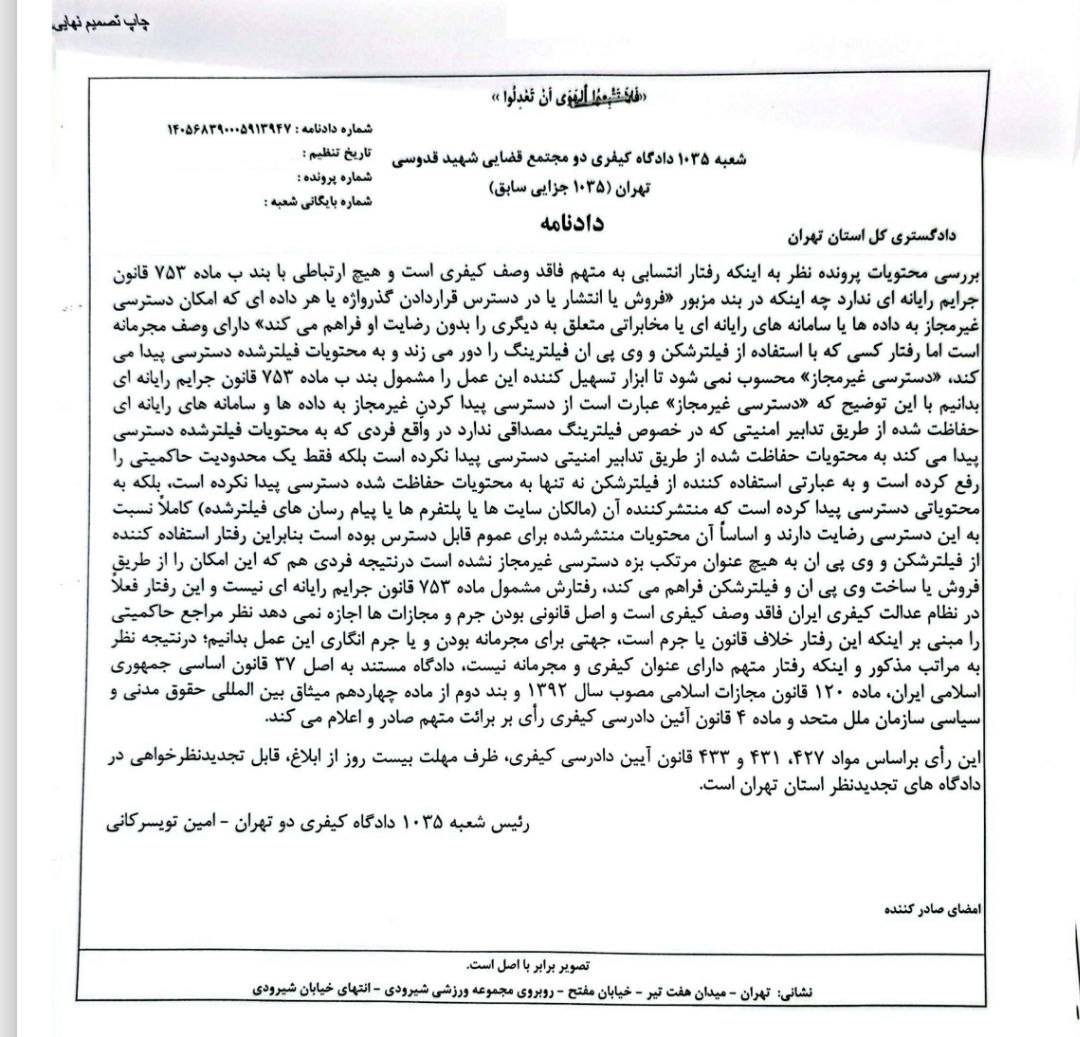 چاپ تصمیم نهایی
«فَلا تَتَّبِعُوا الْهَوَی أَنْ تَعْدِلُوا»
شماره دادنامه : ۱۴۰۵۶۸۳۹۰۰۰۵۹۱۳۹۴۷
تاریخ تنظیم :
شماره پرونده :
شماره بایگانی شعبه :
شعبه ۱۰۳۵ دادگاه کیفری دو مجتمع قضایی شهید قدوسی
تهران (۱۰۳۵ جزایی سابق)
دادنامه
دادگستری کل استان تهران
بررسی محتویات پرونده نظر به اینکه رفتار انتسابی به متهم فاقد وصف کیفری است و هیچ ارتباطی با بند ب ماده ۷۵۳ قانون
جرایم رایانه ای ندارد چه اینکه در بند مزبور «فروش یا انتشار یا در دسترس قراردادن گذرواژه یا هر داده ای که امکان دسترسی
غیرمجاز به داده ها یا سامانه های رایانه ای یا مخابراتی متعلق به دیگری را بدون رضایت او فراهم می کند» دارای وصف مجرمانه
است اما رفتار کسی که با استفاده از فیلترشکن و وی پی ان فیلترینگ را دور می زند و به محتویات فیلترشده دسترسی پیدا می
کند، «دسترسی غیرمجاز» محسوب نمی شود تا ابزار تسهیل کننده این عمل را مشمول بند ب ماده ۷۵۳ قانون جرایم رایانه ای
بدانیم با این توضیح که «دسترسی غیرمجاز» عبارت است از دسترسی پیدا کردنِ غیرمجاز به داده ها و سامانه های رایانه ای
حفاظت شده از طریق تدابیر امنیتی که در خصوص فیلترینگ مصداقی ندارد در واقع فردی که به محتویات فیلترشده دسترسی
پیدا می کند به محتویات حفاظت شده از طریق تدابیر امنیتی دسترسی پیدا نکرده است بلکه فقط یک محدودیت حاکمیتی را
رفع کرده است و به عبارتی استفاده کننده از فیلترشکن نه تنها به محتویات حفاظت شده دسترسی پیدا نکرده است، بلکه به
محتویاتی دسترسی پیدا کرده است که منتشرکننده آن (مالکان سایت ها یا پلتفرم ها یا پیام رسان های فیلترشده) کاملاً نسبت
به این دسترسی رضایت دارند و اساساً آن محتویات منتشرشده برای عموم قابل دسترس بوده است بنابراین رفتار استفاده کننده
از فیلترشکن و وی پی ان به هیچ عنوان مرتکب بزه دسترسی غیرمجاز نشده است درنتیجه فردی هم که این امکان را از طریق
فروش یا ساخت وی پی ان و فیلترشکن فراهم می کند، رفتارش مشمول ماده ۷۵۳ قانون جرایم رایانه ای نیست و این رفتار فعلاً
در نظام عدالت کیفری ایران فاقد وصف کیفری است و اصل قانونی بودن جرم و مجازات ها اجازه نمی دهد نظر مراجع حاکمیتی
را مبنی بر اینکه این رفتار خلاف قانون یا جرم است، جهتی برای مجرمانه بودن و یا جرم انگاری این عمل بدانیم؛ درنتیجه نظر
به مراتب مذکور و اینکه رفتار متهم دارای عنوان کیفری و مجرمانه نیست، دادگاه مستند به اصل ۳۷ قانون اساسی جمهوری
اسلامی ایران، ماده ۱۲۰ قانون مجازات اسلامی مصوب سال ۱۳۹۲ و بند دوم از ماده چهاردهم میثاق بین المللی حقوق مدنی و
سیاسی سازمان ملل متحد و ماده ۴ قانون آئین دادرسی کیفری رأی بر برائت متهم صادر و اعلام می کند.
این رأی براساس مواد ۴۲۷، ۴۳۱ و ۴۳۳ قانون آیین دادرسی کیفری، ظرف مهلت بیست روز از ابلاغ، قابل تجدیدنظرخواهی در
دادگاه های تجدیدنظر استان تهران است.
رئیس شعبه ۱۰۳۵ دادگاه کیفری دو تهران - امین تویسرکانی
امضای صادر کننده
تصویر برابر با اصل است.
نشانی: تهران - میدان هفت تیر - خیابان مفتح - روبروی مجموعه ورزشی شیرودی - انتهای خیابان شیرودی